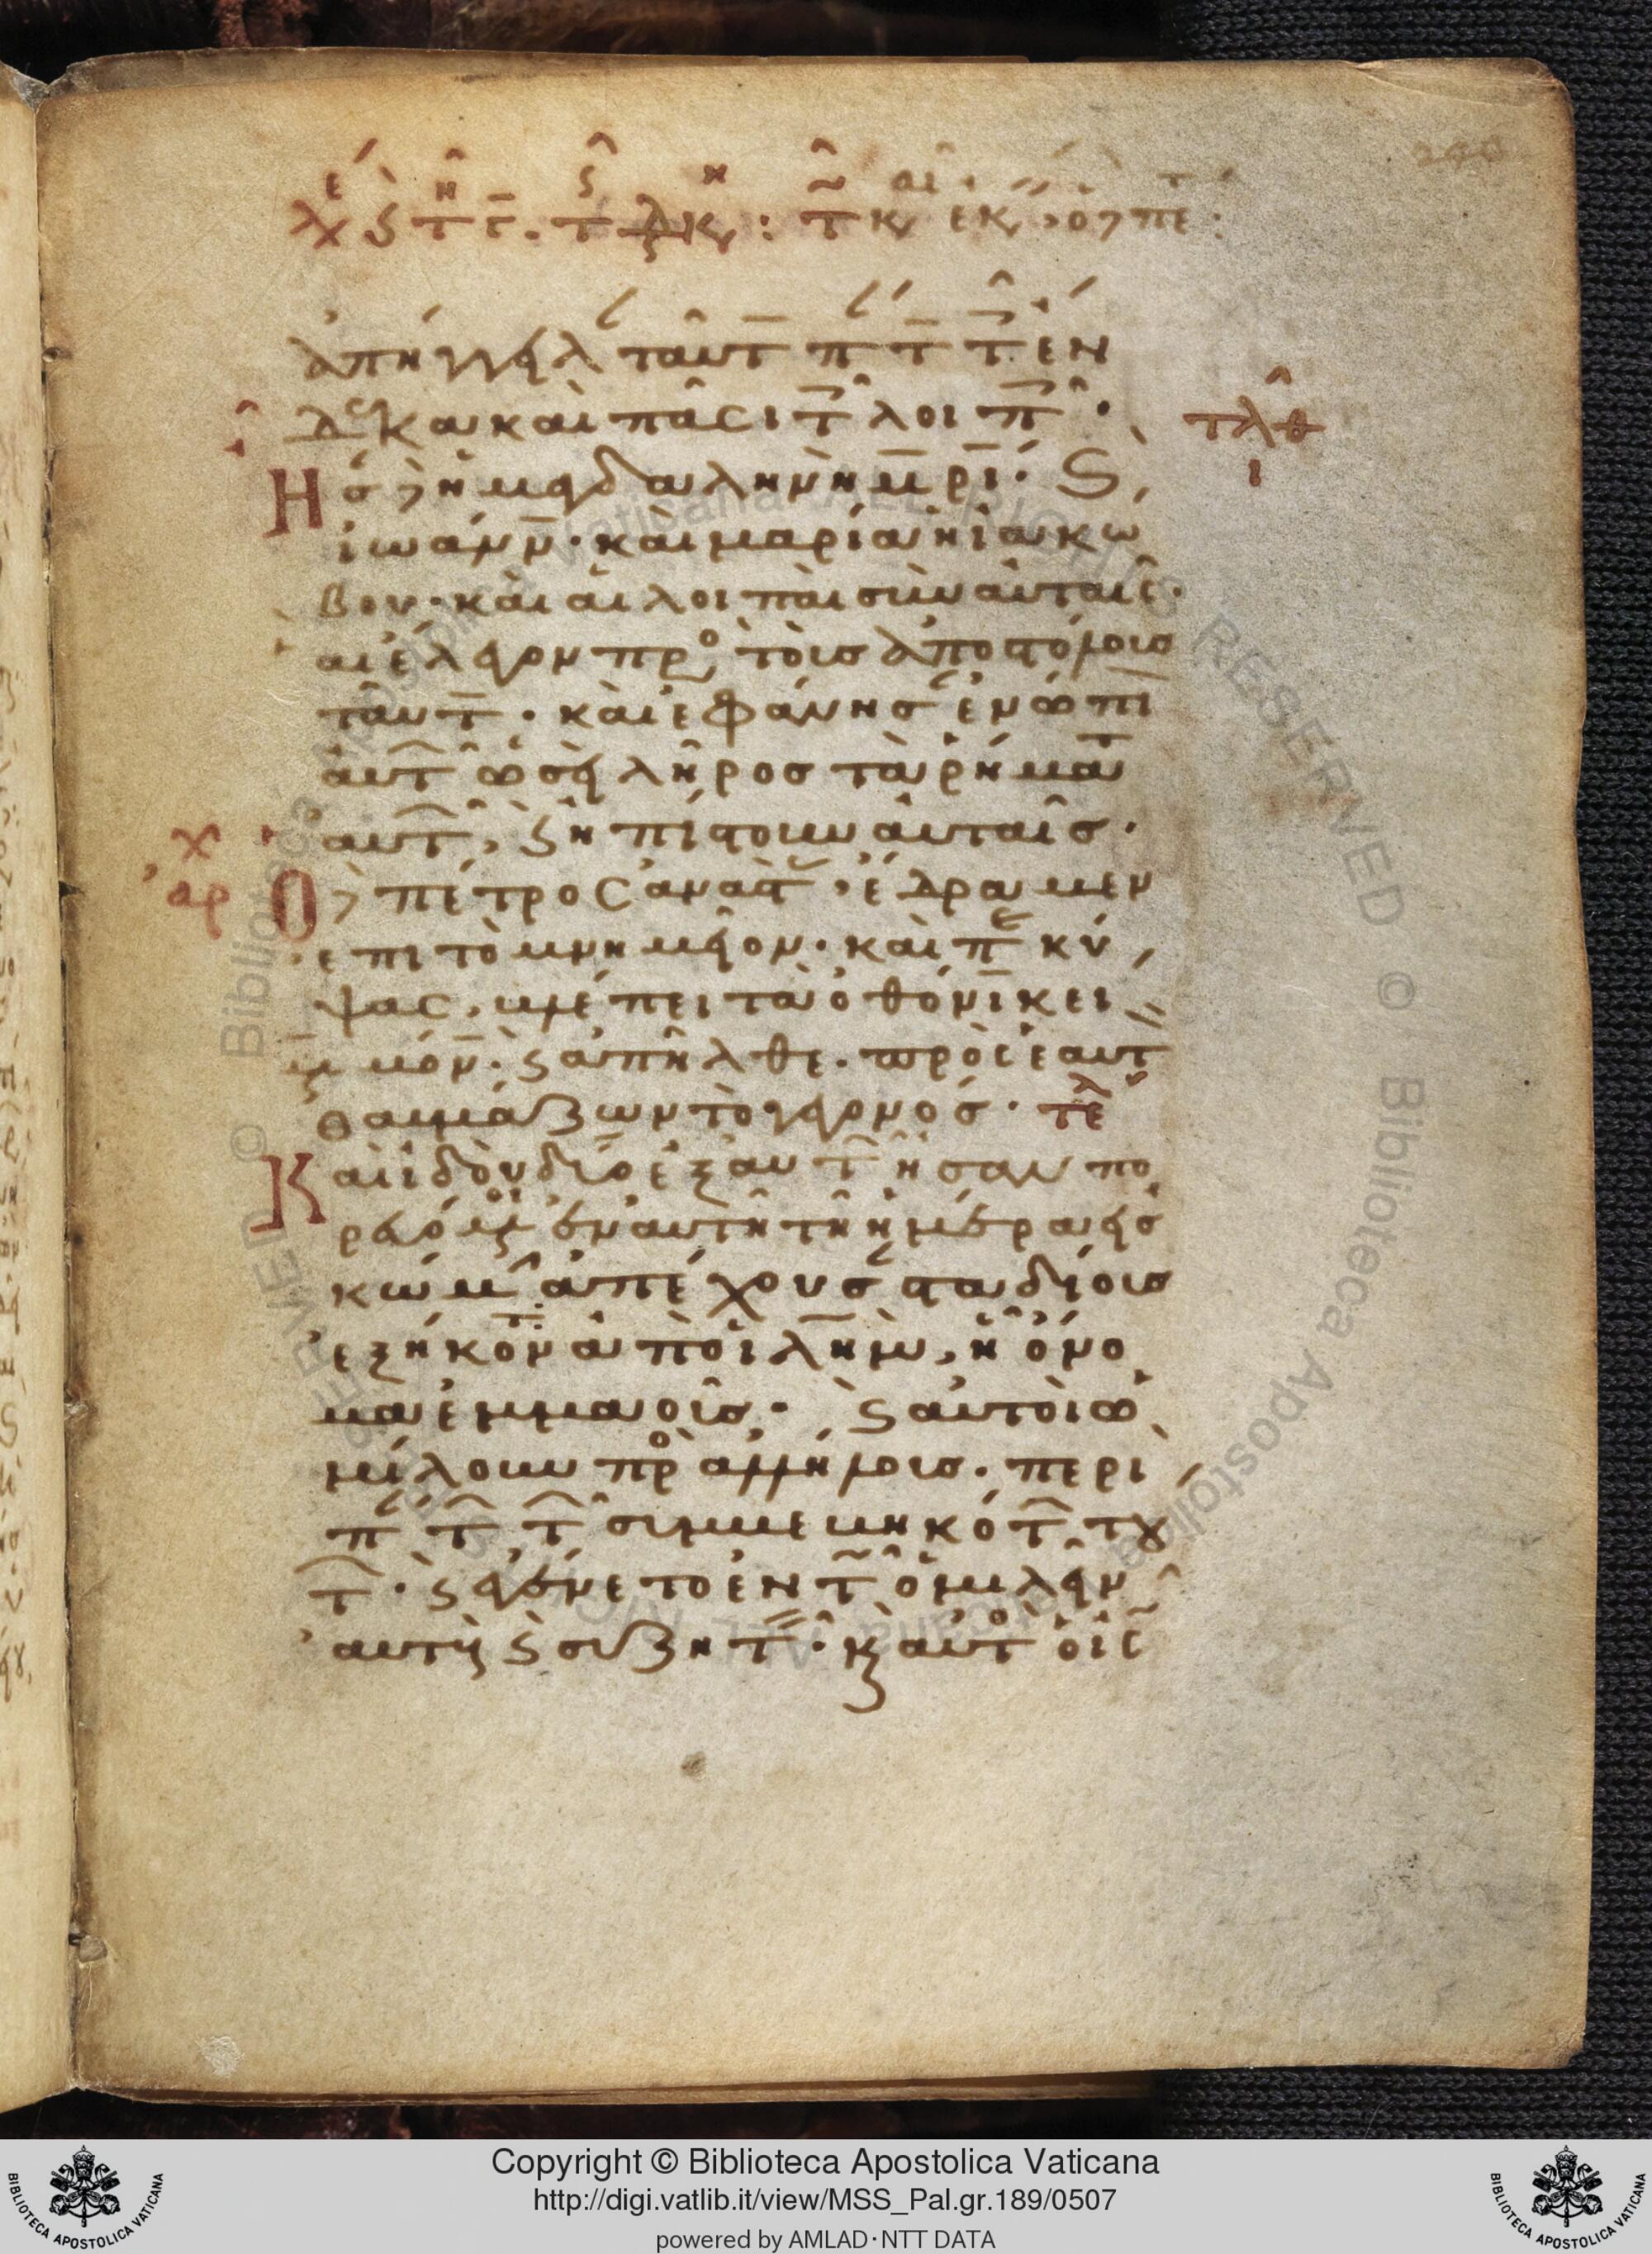 ἀπήγγειλ ταῦτ π τ τ ἕν
δεκα καὶ πᾶσι τ λοιπ·
Ησ δὲ ἡ μαγδαληνὴ μρι· ϛ
ἰωάνν· καὶ μαρία ἡ ἰακώ
βου· καὶ αἱ λοιπαὶ σὺν αὐταῖς·
αἳ ἔλεγον πρὸς τοὺς ἀποστόλους
ταῦτ· καὶ ἐφάνησ ἐνώπι
αὐτ ὡσεὶ λῆρος τὰ ῥήματ
αὐτ, ϛ ἠπίστουν αὐταῖς·
Ο δὲ πέτρος ἀναστ· ἔδραμεν
ἐπὶ τὸ μνημεῖον· καὶ π κύ
ψας, βλέπει τὰ ὀθόνι κεί
μ μόν· ϛ ἀπῆλθε· πρὸς ἑαυτ
θαυμάζων τὸ γεγονός· τε
Και ἰδοὺ δύο ἐξ αὐτ ἦσαν πο
ρευόμ ἐν αὐτῇ τῇ ἡμέρα εἰς
κώμ ἀπέχουσ σταδίους
ἑξήκον ἀπὸ ἰλημ, ἧ ὄνο
μα ἐμμαούς· ϛ αὐτοὶ ὡ
μίλουν πρὸς ἀλλήλους· περὶ
π τ τ συμβεβηκότ του
τ· ϛ ἐγένετο ἐν τ ὁμιλεῖν
αὐτ ϛ συζητ· κ αὐτ ὁ ις
Copyright © Biblioteca Apostolica Vaticana
http://digi.vatlib.it/view/MSS_Pal.gr.189/0507
powered by AMLAD·NTT DATA